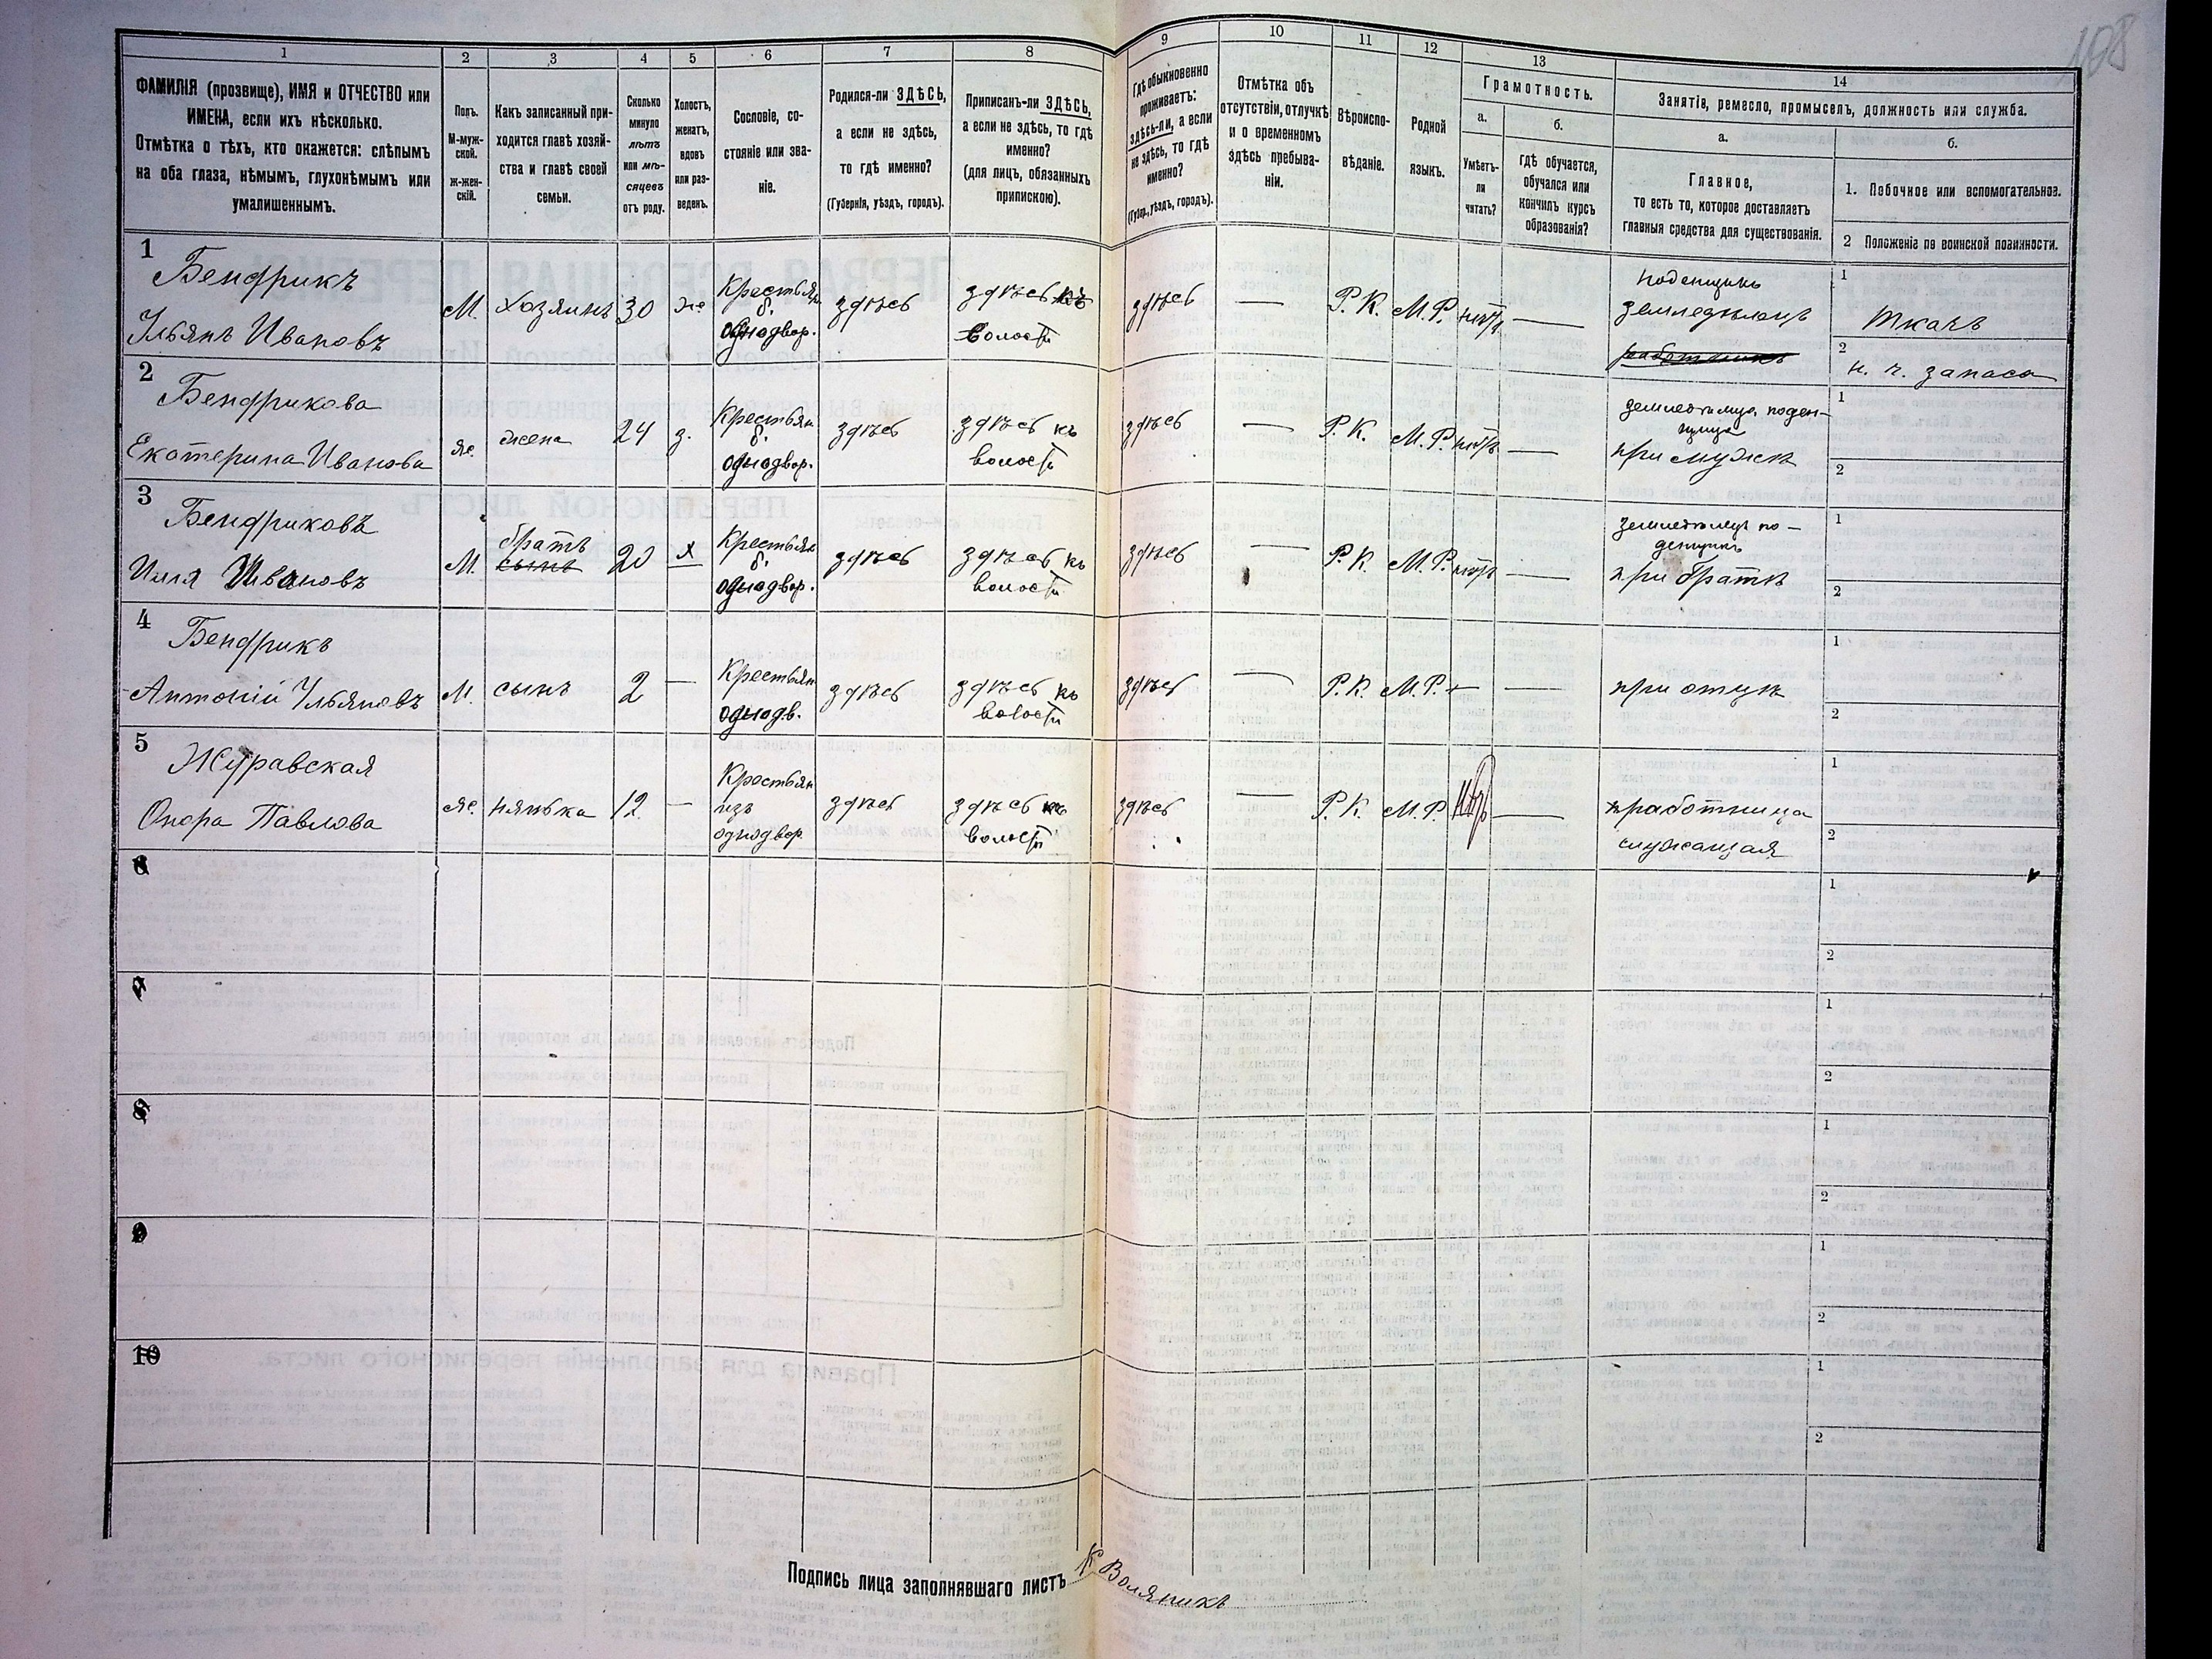 108
1
2
3
4
5
6
7
8
9
10
11
12
13
14
ФАМИЛІЯ (прозвище), ИМЯ и ОТЧЕСТВО или
ИМЕНА, если ихъ нѣсколько.
Отмѣтка о тѣхъ, кто окажется: слѣпымъ
на оба глаза, нѣмымъ, глухонѣмымъ или
умалишеннымъ.
Полъ.
М-муж-
ской.
ж-жен-
скій.
Какъ записанный при-
ходится главѣ хозяй-
ства и главѣ своей
семьи.
Сколько
минуло
лѣтъ
или мѣ-
сяцевъ
отъ роду.
Холостъ,
женатъ,
вдовъ
или раз-
веденъ.
Сословіе, со-
стояніе или зва-
ніе.
Родился-ли ЗДѢСЬ,
а если не здѣсь,
то гдѣ именно?
(Губернія, уѣздъ, городъ).
Приписанъ-ли ЗДѢСЬ,
а если не здѣсь, то гдѣ
именно?
(для лицъ, обязанныхъ
припискою).
Гдѣ обыкновенно
проживаетъ:
здѣсь-ли, а если
не здѣсь, то гдѣ
именно?
(Губер., уѣздъ, городъ).
Отмѣтка объ
отсутствіи, отлучкѣ
и о временномъ
здѣсь пребыва-
ніи.
Вѣроиспо-
вѣданіе.
Родной
языкъ.
Грамотность.
а.
Умѣетъ-
ли
читать?
б.
гдѣ обучается,
обучался или
кончилъ курсъ
образованія?
Занятіе, ремесло, промыселъ, должность или служба.
а.
Главное,
то есть то, которое доставляетъ
главныя средства для существованія.
б.
1. Побочное или вспомогательное.
2 Положеніе по воинской повинности.
1
Бендрикъ
Ульянъ Ивановъ
М.
Хозяинъ
30
же
Крестьян
б.
однодвор.
здѣсь
здѣсь къ
волости
здѣсь
—
Р. К.
М. Р.
нѣтъ
—
поденщикъ
земледѣлецъ
работникъ
1
Ткачъ
2
н. ч. запаса
2
Бендрикова
Екатерина Иванова
же.
жена
24
з.
Крестьян
б.
однодвор.
здѣсь
здѣсь къ
волости
здѣсь
—
Р. К.
М. Р.
нѣтъ
—
земледѣлица поден-
щица
при мужѣ
1
2
3
Бендриковъ
Илія Ивановъ
М.
братъ
сынъ
20
х
Крестьян
б.
однодвор.
здѣсь
здѣсь къ
волости
здѣсь
—
Р. К.
М. Р.
нѣтъ
—
земледѣлецъ по-
денщикъ
при братѣ
1
2
4
Бендрикъ
Антоній Ульяновъ
М.
сынъ
2
—
Крестьян
однодв.
здѣсь
здѣсь къ
волости
здѣсь
—
Р. К.
М. Р.
—
—
при отцѣ
1
2
5
Журавская
Онора Павлова
же.
нянька
12
—
Крестьян
изъ
однодвор
здѣсь
здѣсь къ
волости
здѣсь
—
Р. К.
М. Р.
нѣтъ
—
работница
служащая
1
2
6
1
2
7
1
2
8
1
2
9
1
2
10
1
2
Подпись лица заполнявшаго листъ К Воляникъ